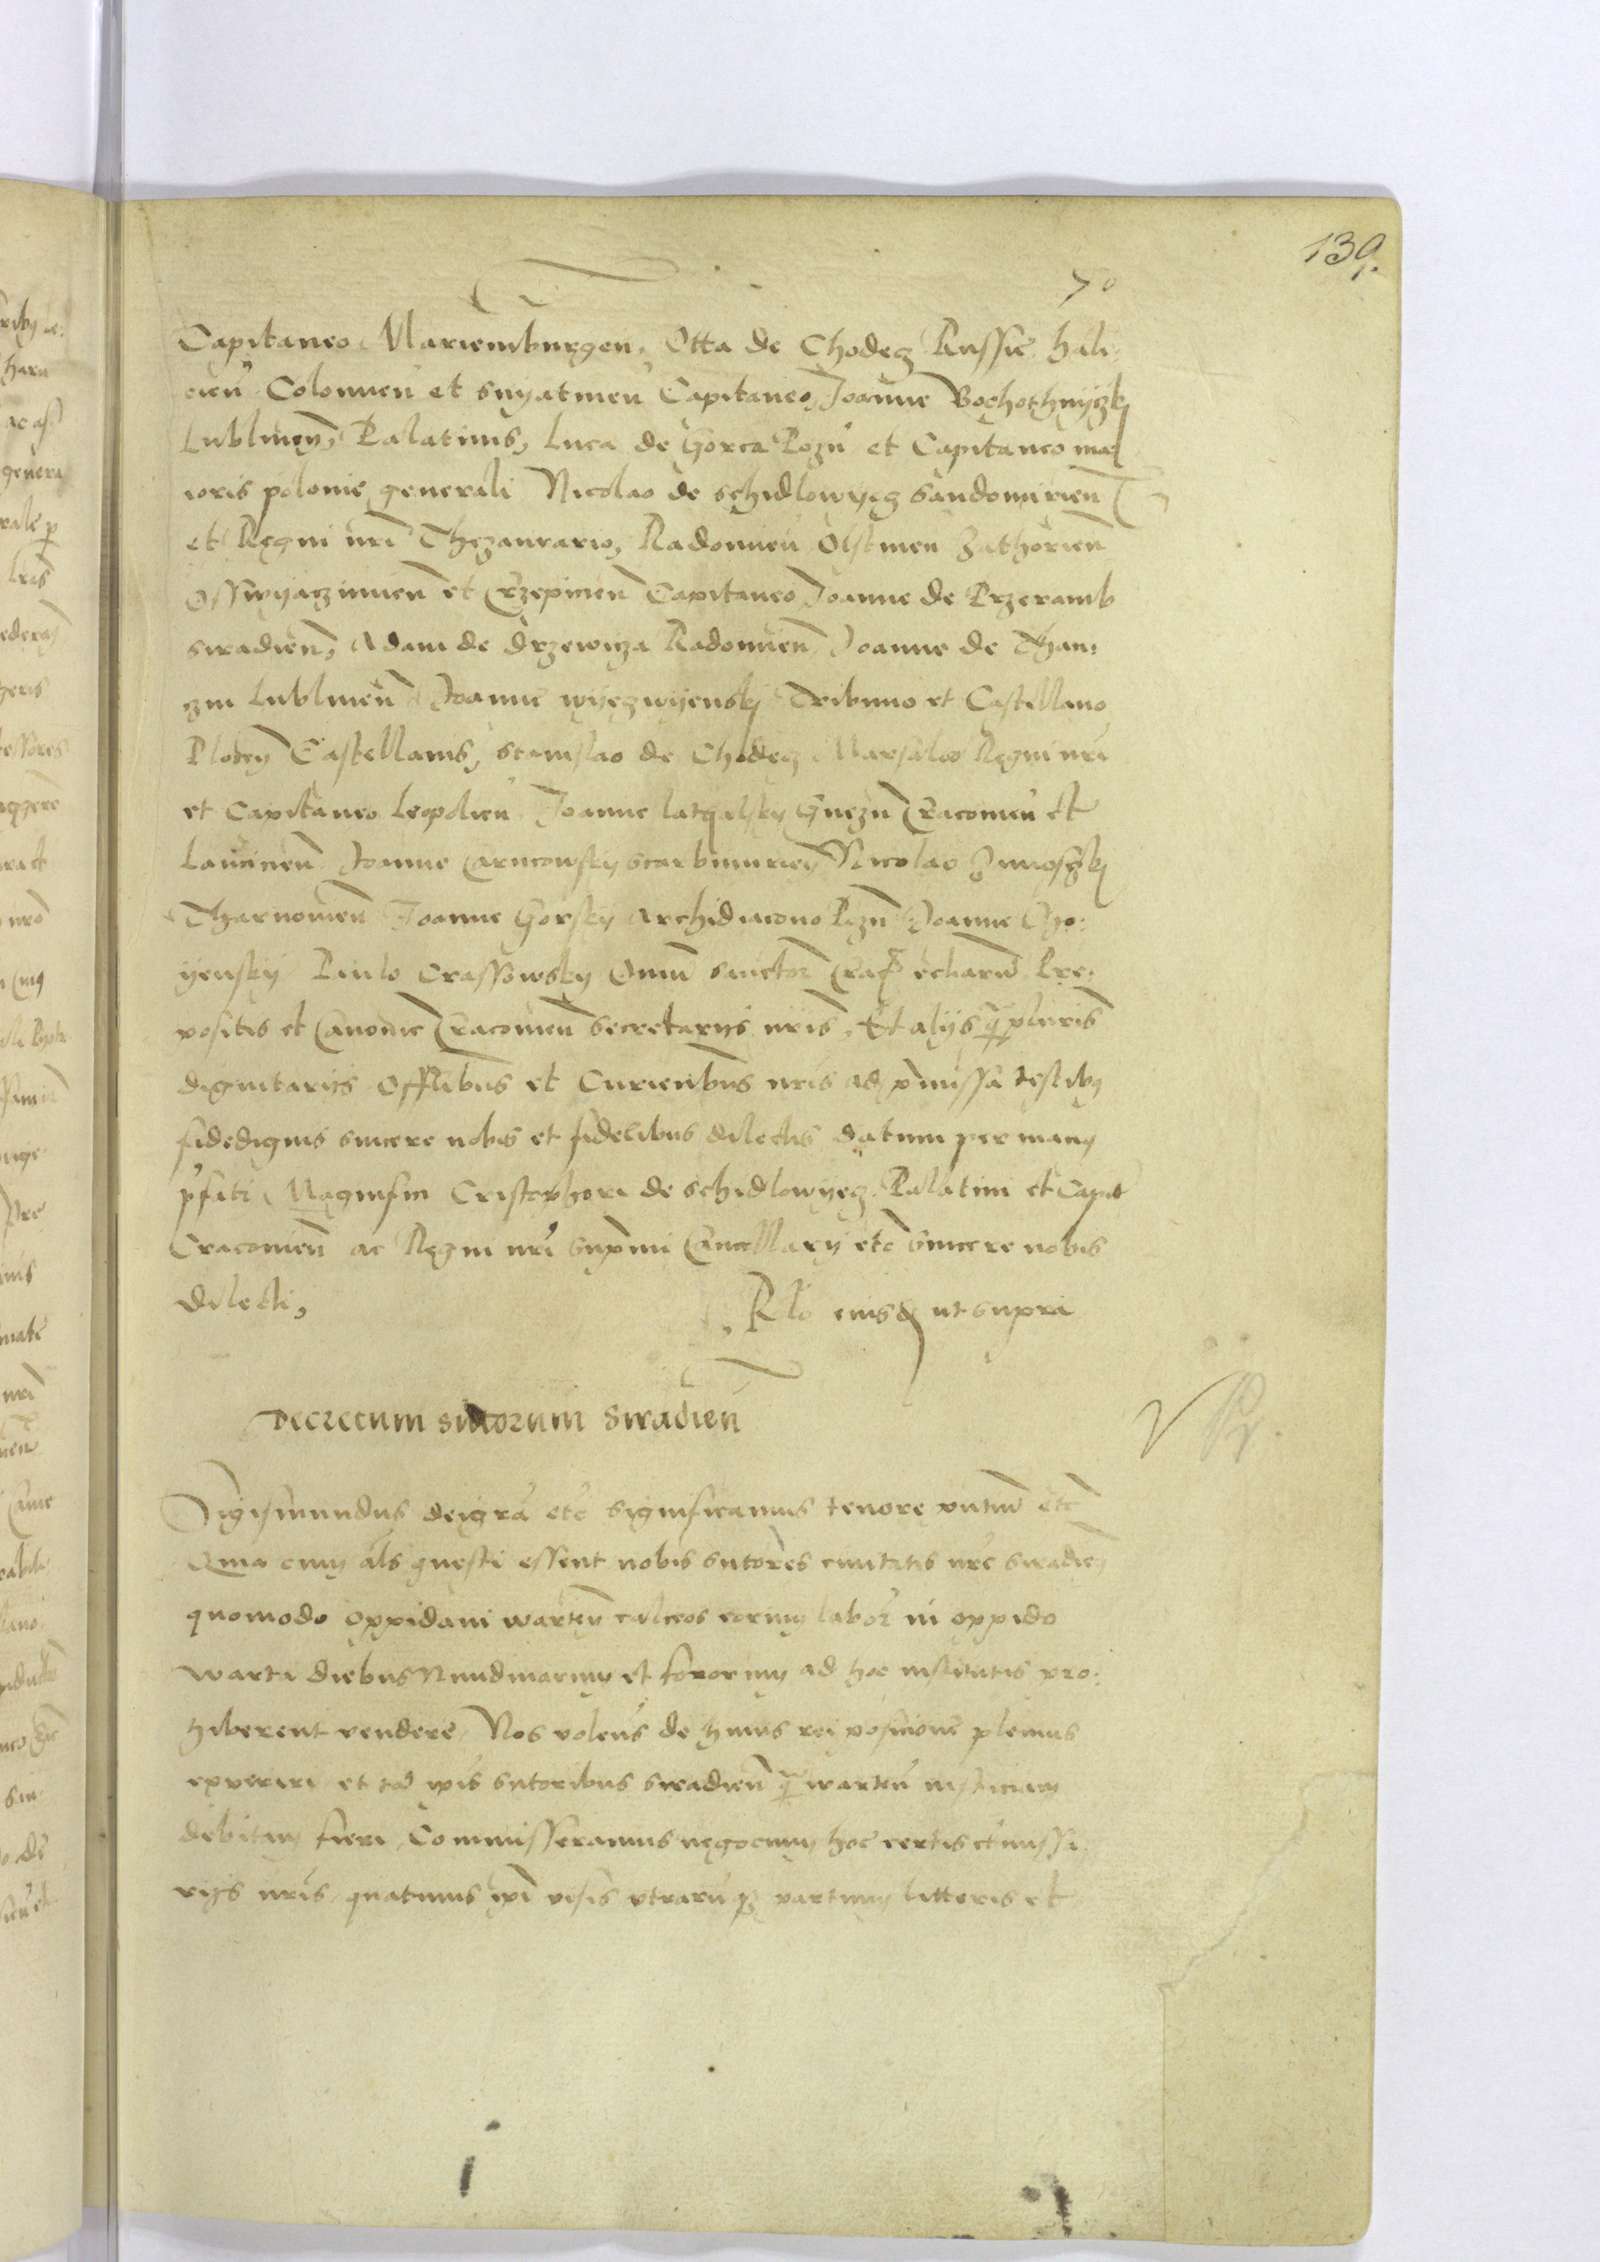 139.
70
Capitaneo Mariemburgen, Otta de Chodecz Russie hali
cien Colomien et snyatinen Capitaneo, Joanne Bochothnyczkj
Lublinen, Palatinis, Luca de Gorca Pozn et Capitaneo ma
ioris polonie generali Nicolao de schidlowyecz Sandomirien
et Regni nri Thezaurario, Radomien Olstinen Zathorien
Osswyaczimien et Crzepicien Capitaneo Joanne de Przeramb
siradien, Adam de drzewicza Radomien Joanne de Than,
czin Lublinen Joanne wyeczwyenskj Tribuno et Castellano
Plocen Castellanis, Stanislao de Chodecz Marsalco Regni nri
et Capitaneo Leopolien Joanne latalsky Gnezn Cracovien et
Lancicien Joanne Carncowsky scarbimirien Nicolao
Tharnovien Joanne Gorsky Archidiacono Pozn Joanne Cho,
yensky Paulo Crassowsky Omni sanctor Crac ecclarum Pre,
positis et Canonic Cracovien Secretarijs nris, Et alijs qpluris
dignitarijs Offlibus et Curiensibus nris ad pmissa testibus
fidedignis sincere nobis et fidelibus dilectis datum per manus
pfati Magnifici Cristophori de schidlowyecz Palatini et Capit
Cracovien ac Regni nri Supmi Cancellarij etc Sincere nobis
dilecti,
Rlo eiusd ut supra
Decretum sutorum Siradien
Sigismundus dei gra etc Significamus tenore pntium etc
Quia cum als questi essent nobis sutores civitatis nre Siradien
quomodo oppidani warten calceos eorum labor in oppido
warta diebus Nundinarum et fororum ad hoc institutis pro,
hiberent vendere, Nos volens de huius rei posicione plenius
experiri et tad ipis sutoribus siradien q warten iusticiam
debitam fieri Commisseramus negocium hoc certis cmissa
rijs nris, quatinus ipi visis utrarumq partium litteris et